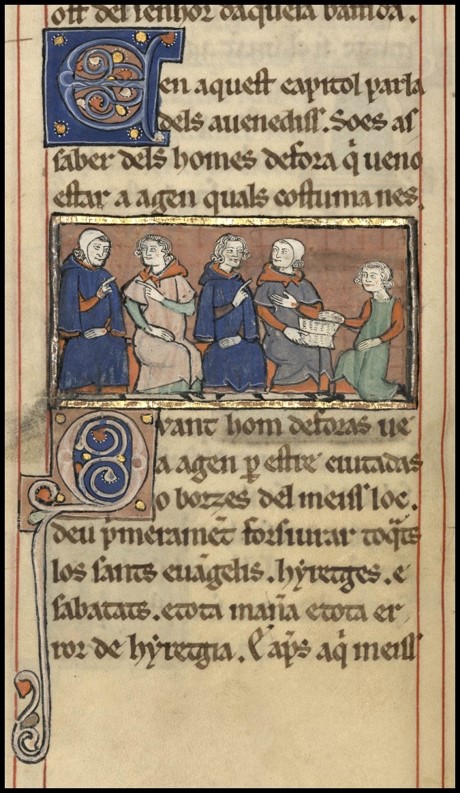 oſt del senhor daquela batida.
En aquest capitol parla
dels auenediſſ. Soes aſ
saber dels homes defora q̃ ueno
estar a agen quals costuma nes.
Qvant hom deforas ue
a agen ꝑ estre ciutadas
o borzes del meiſſ loc.
deu p̃meramẽt forsiurar toq̃ts
los sants euãgelis. hyretges. e
sabatats. etota mañia etota er
ror de hyretgia. E ap̃s aq̃ meiſſ